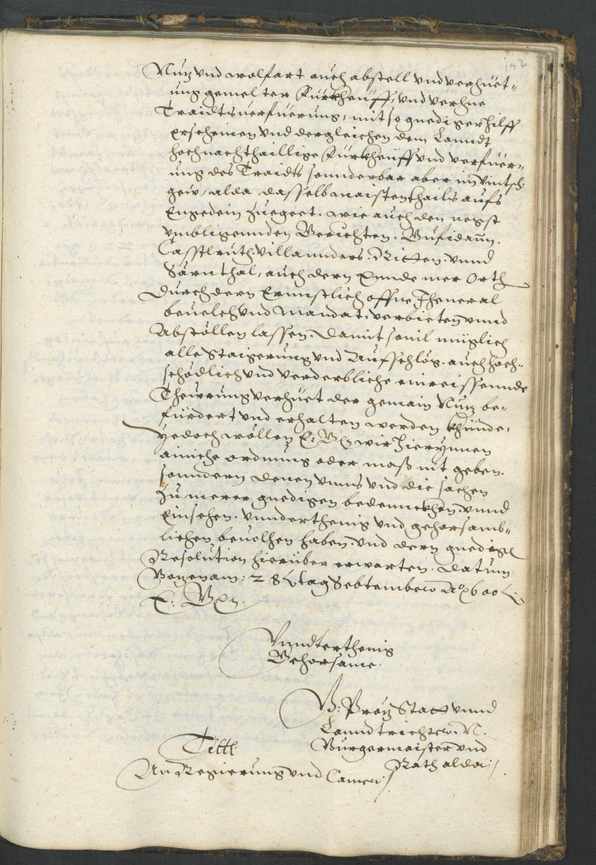 142
Nuz vnd wolfart auch abstell vnd verhüet-
ung gemelter Fürkheüff, vnd verhne
Traidtsverfüerung, mit so gnediger hilff
erscheinen vnd dergleichen dem Lanndt
hochnachthaillige Fürkheüff vnd verfüer-
ung des Traidts sonnderbar aber im Vintsch-
geü, alda dasselb maistenthails aufs
Engedein zuegeet. wie auch den negst
vmbligennden Gerichten. Gufidaun.
Casstlruth Villannders Ritten. vnnd
Särnthal, auch dern Ennde mer Orth
Durch dern Ernnstlich offne General
beuelch vnd Mandat. verbieten vnnd
Abstöllen lassen, damit souil müglich
alle Staigerung vnd Aufschleg. auch hoch-
schödlich vnd verderbliche einreissennde
Theurung verhüet der gemain Nuz be-
fürdert vnd erhalten werden khünde,
yedoch wöllen E: Gn: wir hierynnen
ainiche ordnung oder maß nit geben
sonndern denen vnns vnd die sachen
zu merer gnedigen bedennckhen vnnd
Einsehen. vnnderthenig vnd gehorsamb-
lichen beuolhen haben, vnd dern gnedige
Resolution hierüber erwarten. Datum
Bozen am: 28 tag Septembris A° 600
E: Gn:
Vnnderthenig
Gehorsame
N: Pröz Statt vnnd
Lanndtrichter N.
Burgermaister vnd
Rath alda
Titl
An Regierung vnd Camer